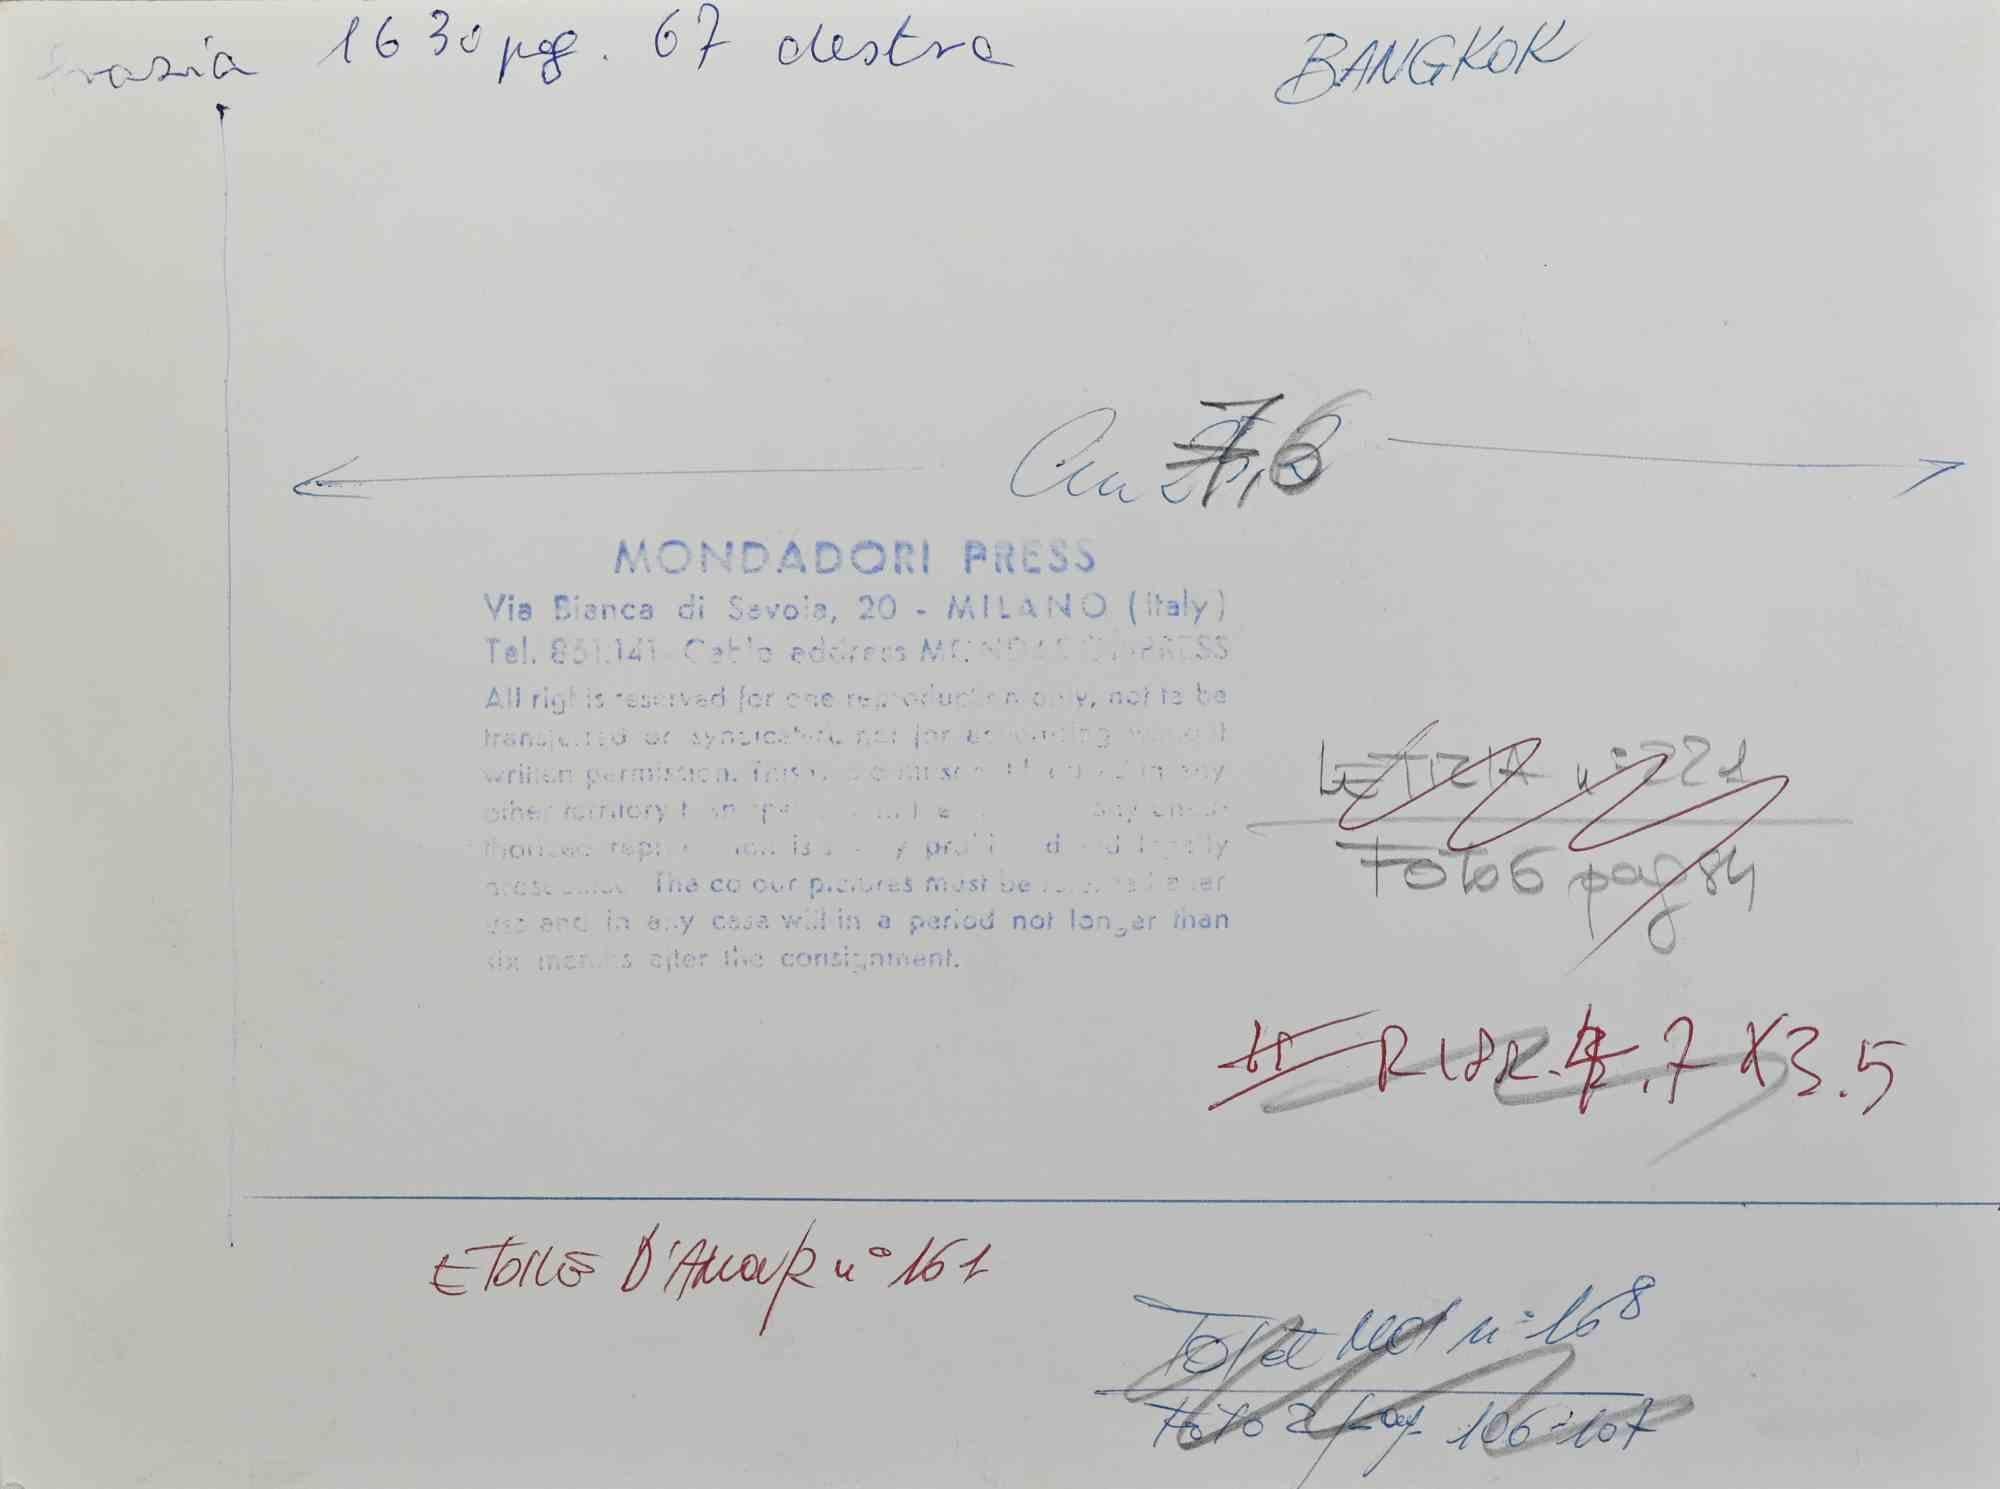 Grazia 1630 pag. 67 destra
BANGKOK
Cm 7,6
MONDADORI PRESS
Via Bianca di Savoia, 20 - MILANO (Italy)
Tel. 851.141 - Cable address MONDADORIPRESS
All rights reserved for one reproduction only, not to be
transferred or syndicated, nor for advertising without
written permission. This in any
other territory than
thorized is legally
The colour pictures must be returned after
use and in any case within a period not longer than
six months after the consignment.
LETIZIA n° 221
FOTO 6 pag 84
RID. .7 X 3.5
ETOILE D'AMOUR n° 161
n° 168
FOTO 2 pag 106-107